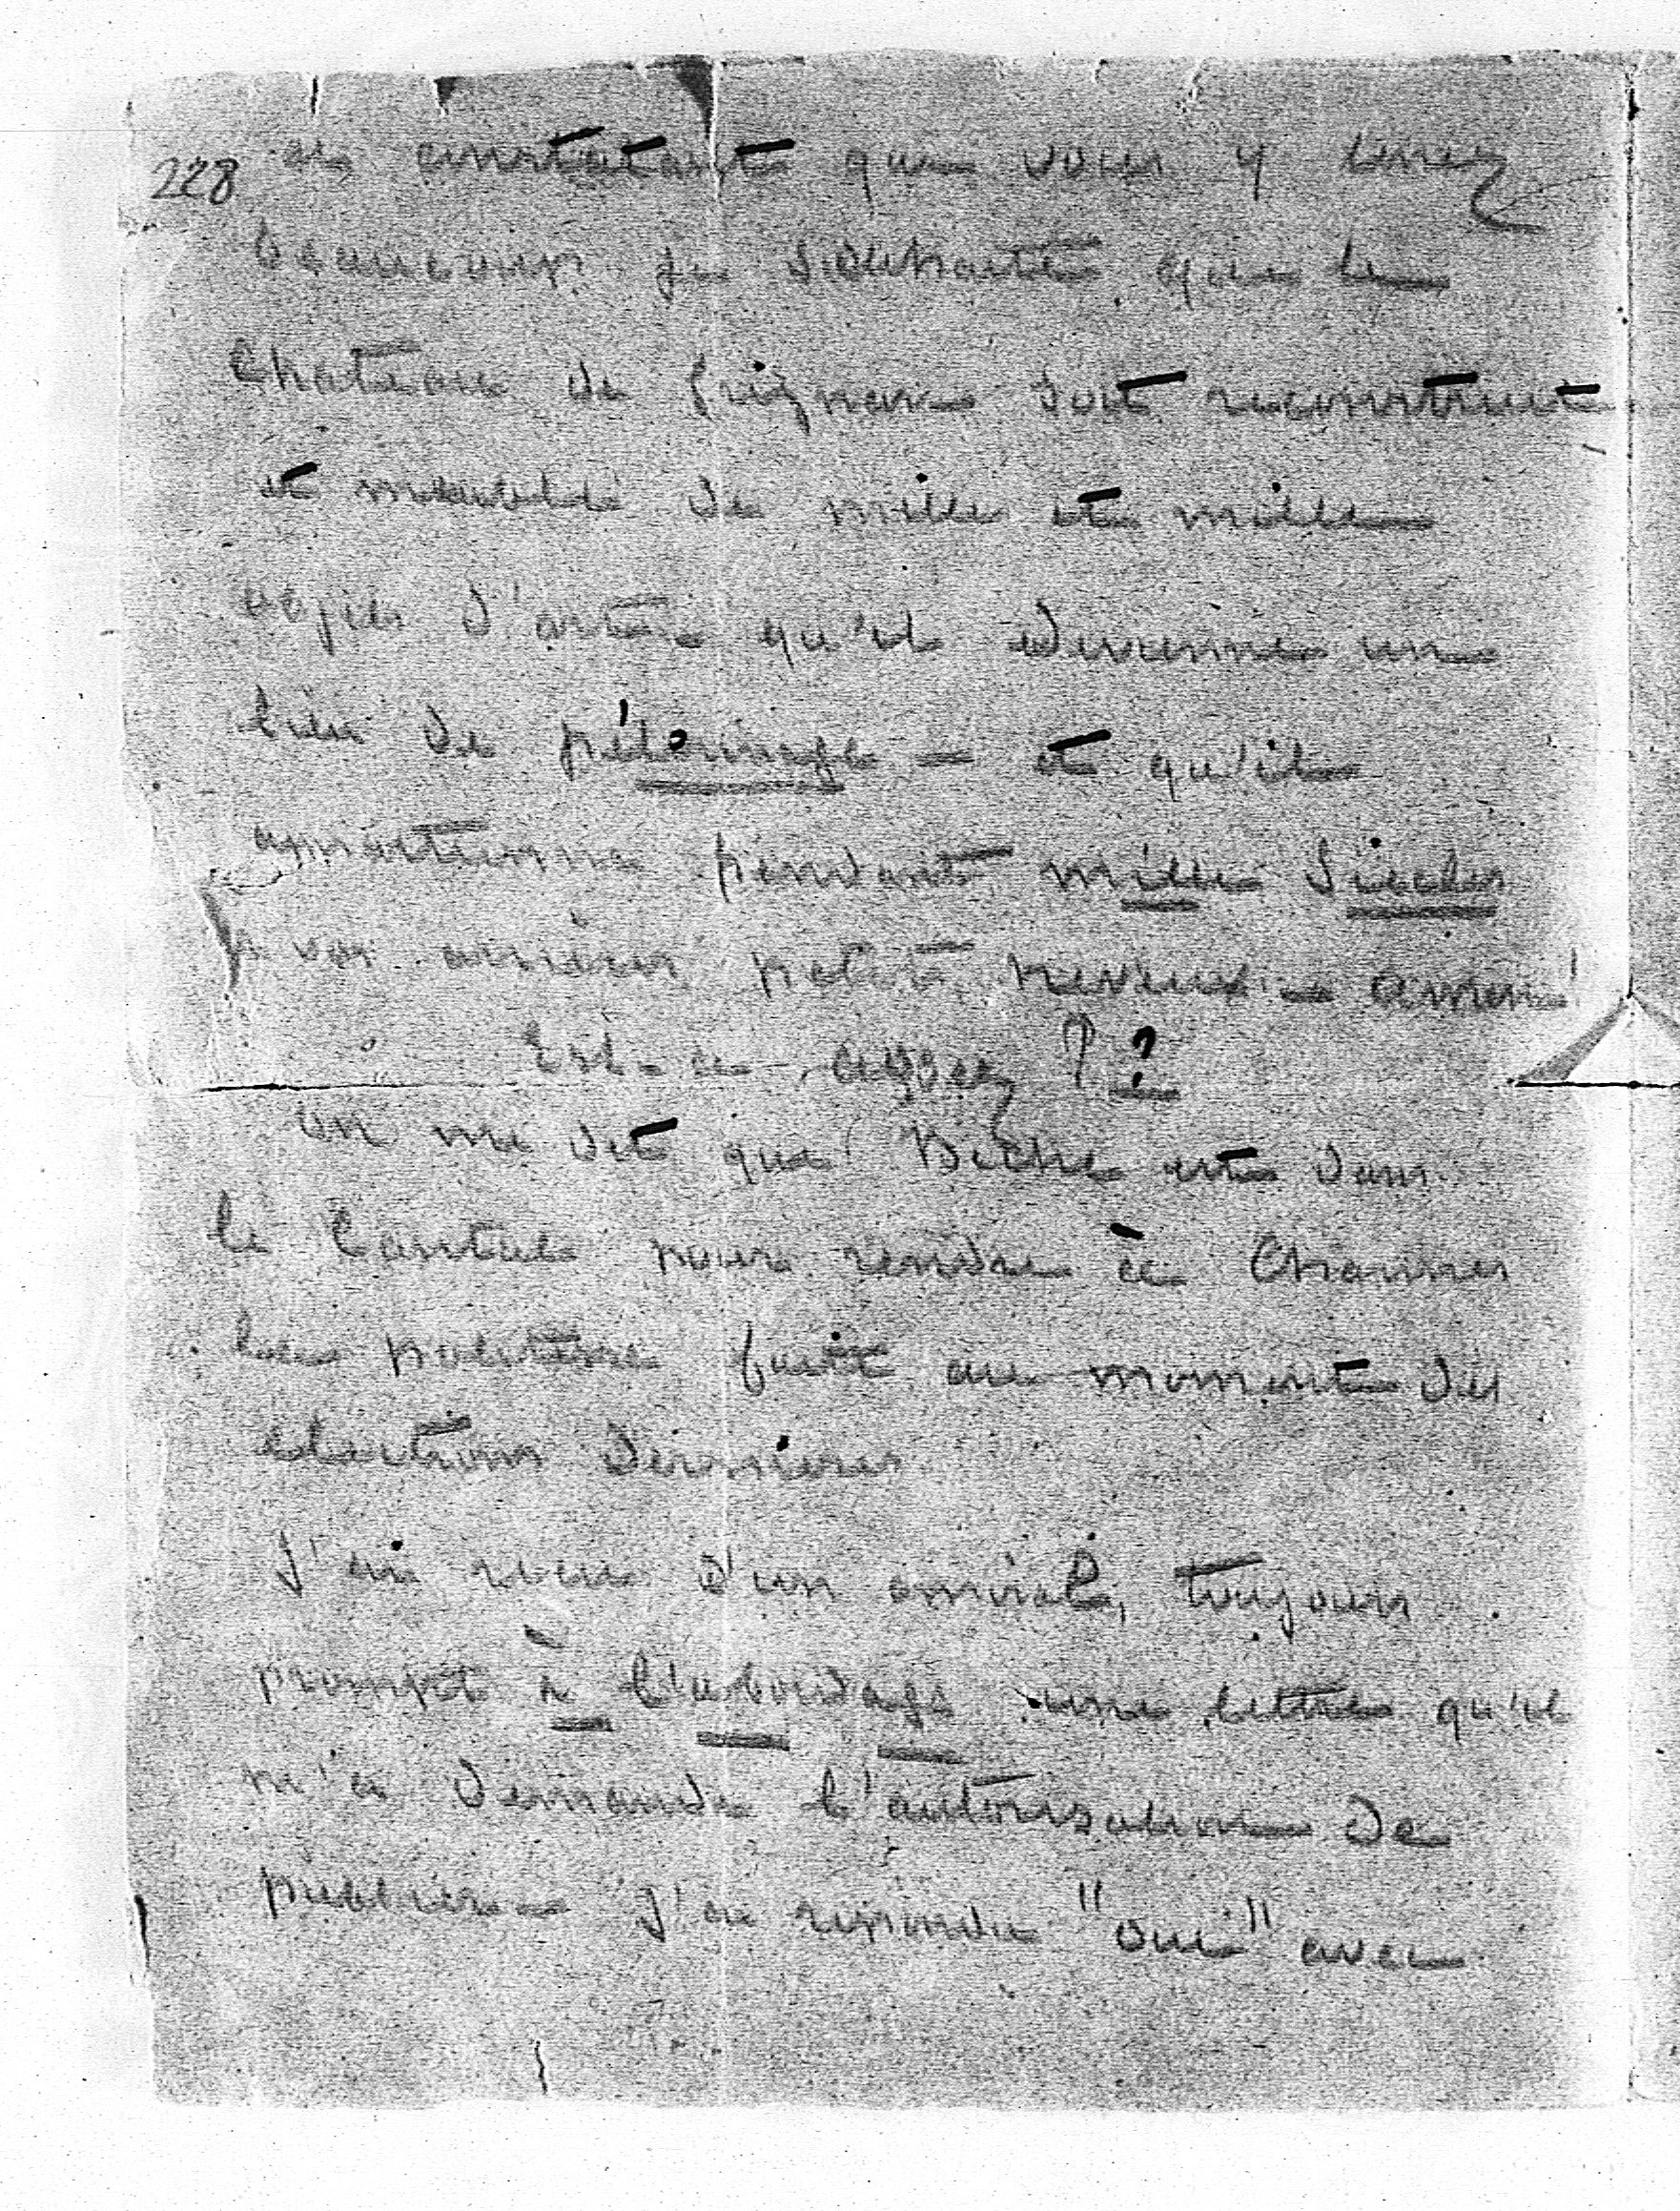 228 en constatant que vous y tenez
beaucoup je souhaite que le
Chateau de Grignan soit reconstruit
et meublé de mille et mille
objets d'art qu'il devienne un
lieu de pélerinage — et qu'il
appartienne pendant mille siècles
à vos arrière petits neveux — amen!
Est-ce assez ? !
On me dit que est dans
le Cantal pour rendre à
la fuite au moment des
élections dernières
J'ai reçu d'un amiral, toujours
prompt à l'abordage une lettre qu'il
m'a demandé l'autorisation de
publier — J'ai répondu "oui" avec